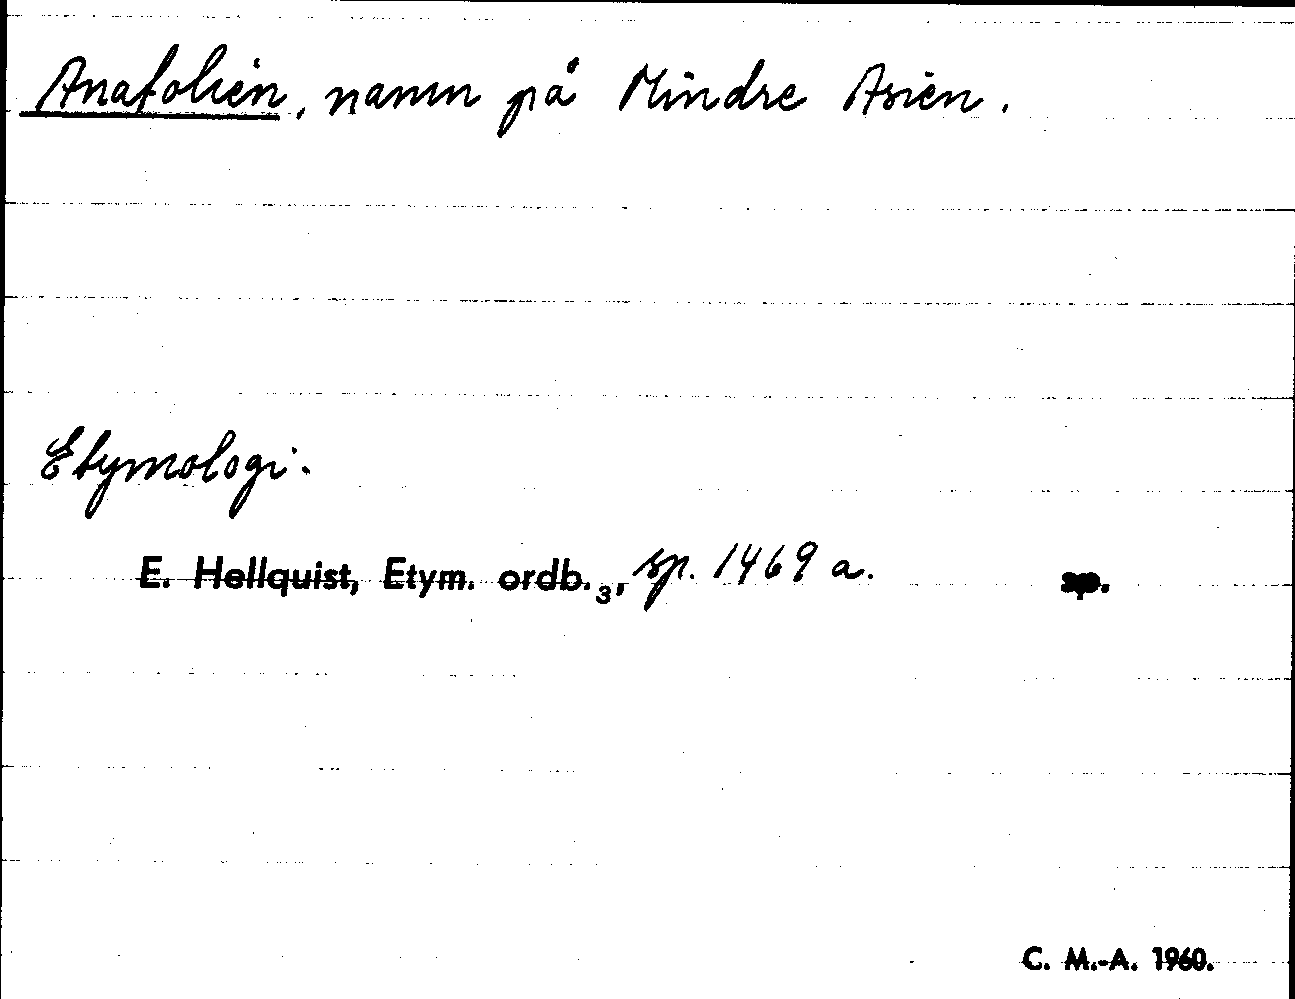 Anatolien, namn på Mindre Asien.
Etymologi.
E. Hellquist, Etym. ordb.₃, sp. 1469 a. sp.
C. M.-A. 1960.